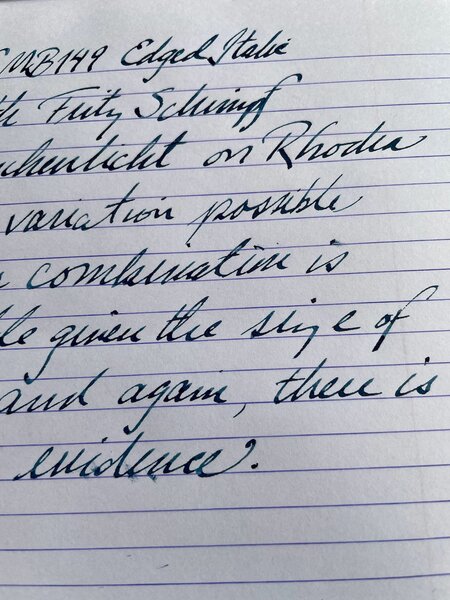 MB149 Edged Italic
Fritz Schimpf
on Rhodia
variation possible
combination is
given the size of
and again, there is
evidence.